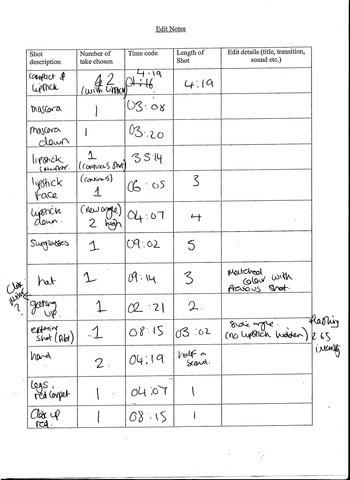 Edit Notes
Shot description | Number of take chosen | Time code | Length of Shot | Edit details (title, transition, sound etc.)
compact & lipstick | 2 (with lipstick) | 4:19 | 4:19
mascara | 1 | 03:08
mascara down | 1 | 03:20
lipstick | 1 (continous shot) | 33:14
lipstick face | (continous) 1 | 06:05 | 3
lipstick down | (new angle) 2 high | 04:07 | 4
sunglasses | 1 | 09:02 | 5
hat | 1 | 09:14 | 3 | Matched colour with previous shot
getting up. | 1 | 02:21 | 2.
exterior shot | 1 | 08:15 | 03:02 | side angle. (no lipstick hidden)
hand | 2. | 04:19 | half a second.
legs, red carpet | 1 | 04:07 | 1
Close up red. | 1 | 08:15 | 1